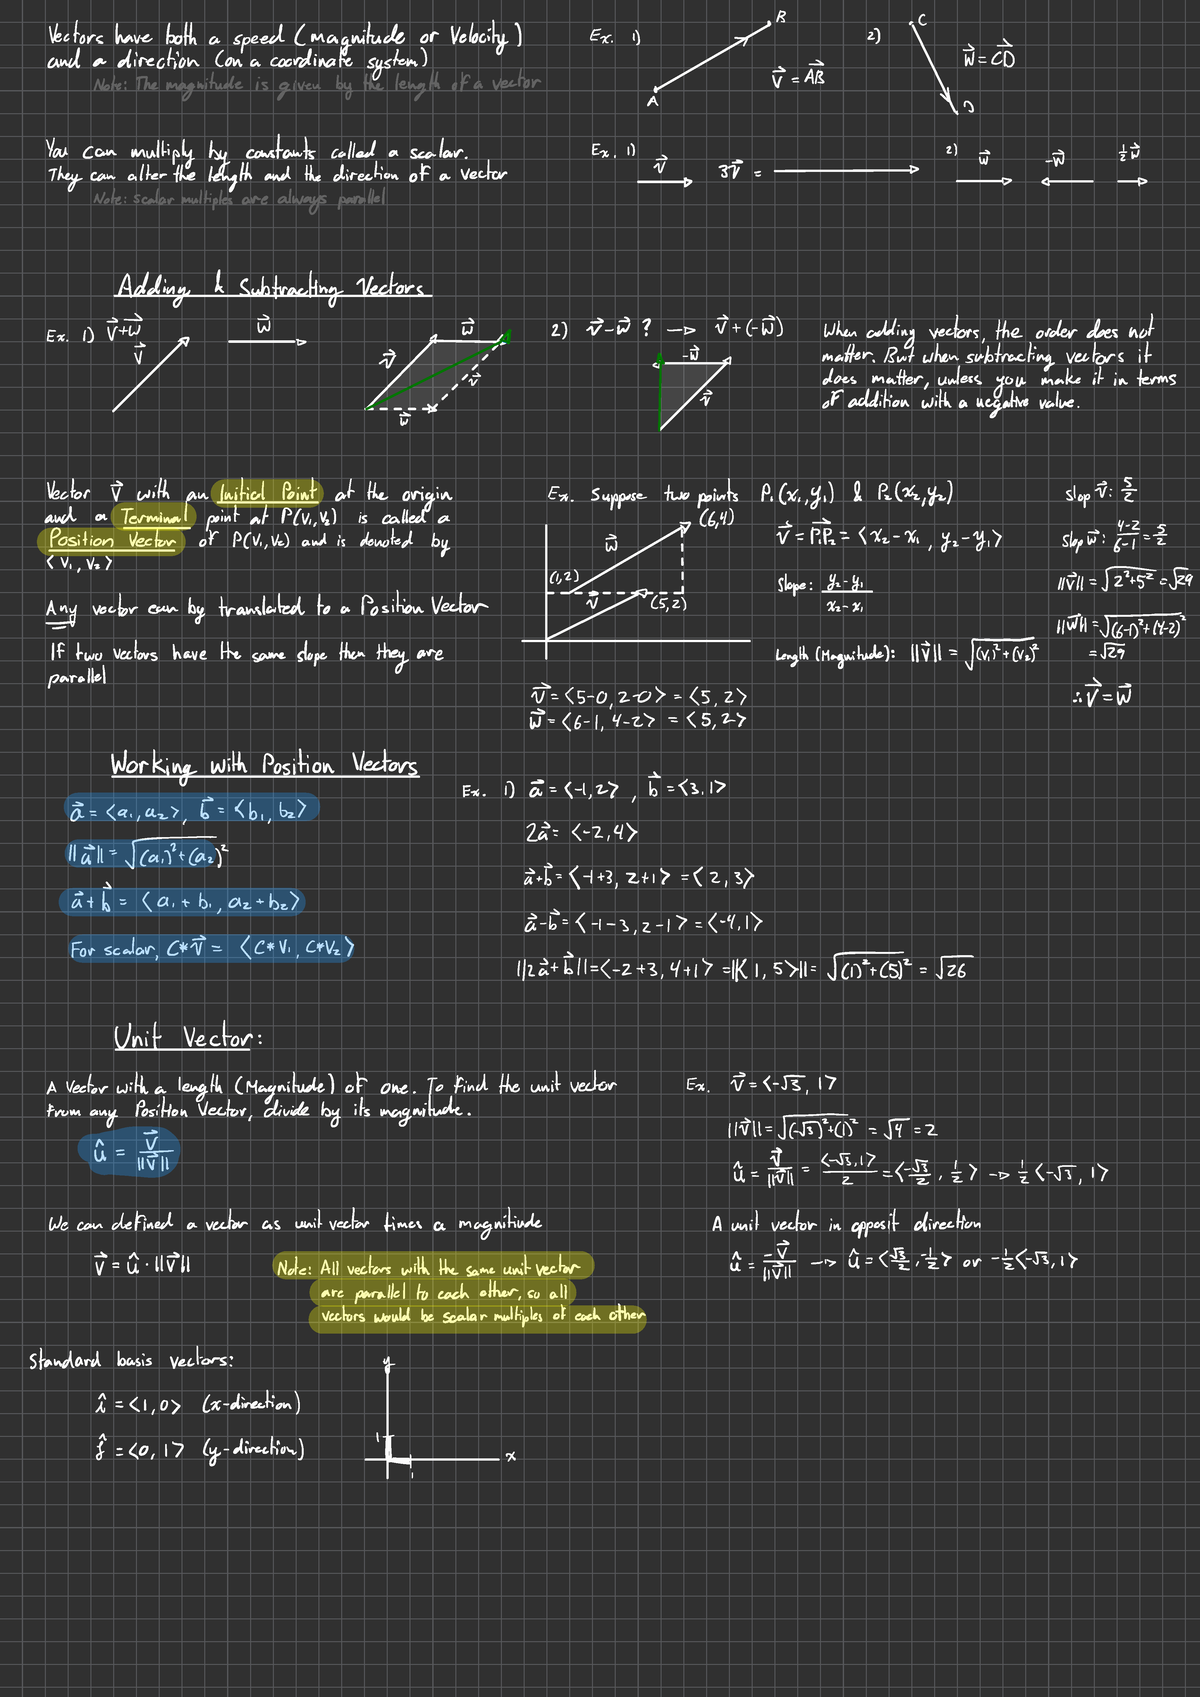 Vectors have both a speed (magnitude or velocity)
and a direction (on a coordinate system)
Note: The magnitude is given by the length of a vector
Ex. 1)
A
B
v⃗ = AB⃗
2)
C
D
w⃗ = CD⃗
You can multiply by constants called a scalar.
They can alter the length and the direction of a vector
Note: scalar multiples are always parallel
Ex. 1) v⃗ 3v⃗ =
2) w⃗ -w⃗ ½w⃗
Adding & Subtracting Vectors
Ex. 1) v⃗+w⃗
v⃗ w⃗
v⃗ w⃗ v⃗ w⃗
2) v⃗-w⃗ ? → v⃗+(-w⃗)
-w⃗
v⃗
When adding vectors, the order does not
matter. But when subtracting vectors it
does matter, unless you make it in terms
of addition with a negative value.
Vector v⃗ with an Initial Point at the origin
and a Terminal point at P(v₁,v₂) is called a
Position Vector of P(v₁,v₂) and is denoted by
<v₁, v₂>
Any vector can by translated to a Position Vector
If two vectors have the same slope then they are
parallel
Ex. Suppose two points P₁(x₁,y₁) & P₂(x₂,y₂)
(6,4)
w⃗
(1,2)
v⃗
(5,2)
v⃗ = P₁P₂⃗ = <x₂-x₁, y₂-y₁>
Slope: y₂-y₁/x₂-x₁
Length (Magnitude): ||v⃗|| = √(v₁)²+(v₂)²
v⃗ = <5-0, 2-0> = <5, 2>
w⃗ = <6-1, 4-2> = <5, 2>
slop v⃗: 5/2
slop w⃗: 4-2/6-1 = 5/2
||v⃗|| = √2²+5² = √29
||w⃗|| = √(6-1)²+(4-2)²
= √29
∴ v⃗ = w⃗
Working with Position Vectors
a⃗ = <a₁, a₂>, b⃗ = <b₁, b₂>
||a⃗|| = √(a₁)²+(a₂)²
a⃗+b⃗ = <a₁+b₁, a₂+b₂>
For scalar, C*v⃗ = <C*V₁, C*V₂>
Ex. 1) a⃗ = <-1,2>, b⃗ = <3,1>
2a⃗ = <-2,4>
a⃗+b⃗ = <-1+3, 2+1> = <2,3>
a⃗-b⃗ = <-1-3, 2-1> = <-4,1>
||2a⃗+b⃗|| = <-2+3, 4+1> = ||<1,5>|| = √(1)²+(5)² = √26
Unit Vector:
A Vector with a length (Magnitude) of one. To find the unit vector
from any Position Vector, divide by its magnitude.
û = v⃗/||v⃗||
Ex. v⃗ = <-√3, 1>
||v⃗|| = √(-√3)²+(1)² = √4 = 2
û = v⃗/||v⃗|| = <-√3,1>/2 = <-√3/2, 1/2> → ½<-√3, 1>
We can defined a vector as unit vector times a magnitude
v⃗ = û · ||v⃗||
Note: All vectors with the same unit vector
are parallel to each other, so all
vectors would be scalar multiples of each other
A unit vector in opposit direction
û = -v⃗/||v⃗|| → û = <√3/2, -1/2> or -½<-√3, 1>
Standard basis vectors:
î = <1,0> (x-direction)
ĵ = <0,1> (y-direction)
y
1
x
1